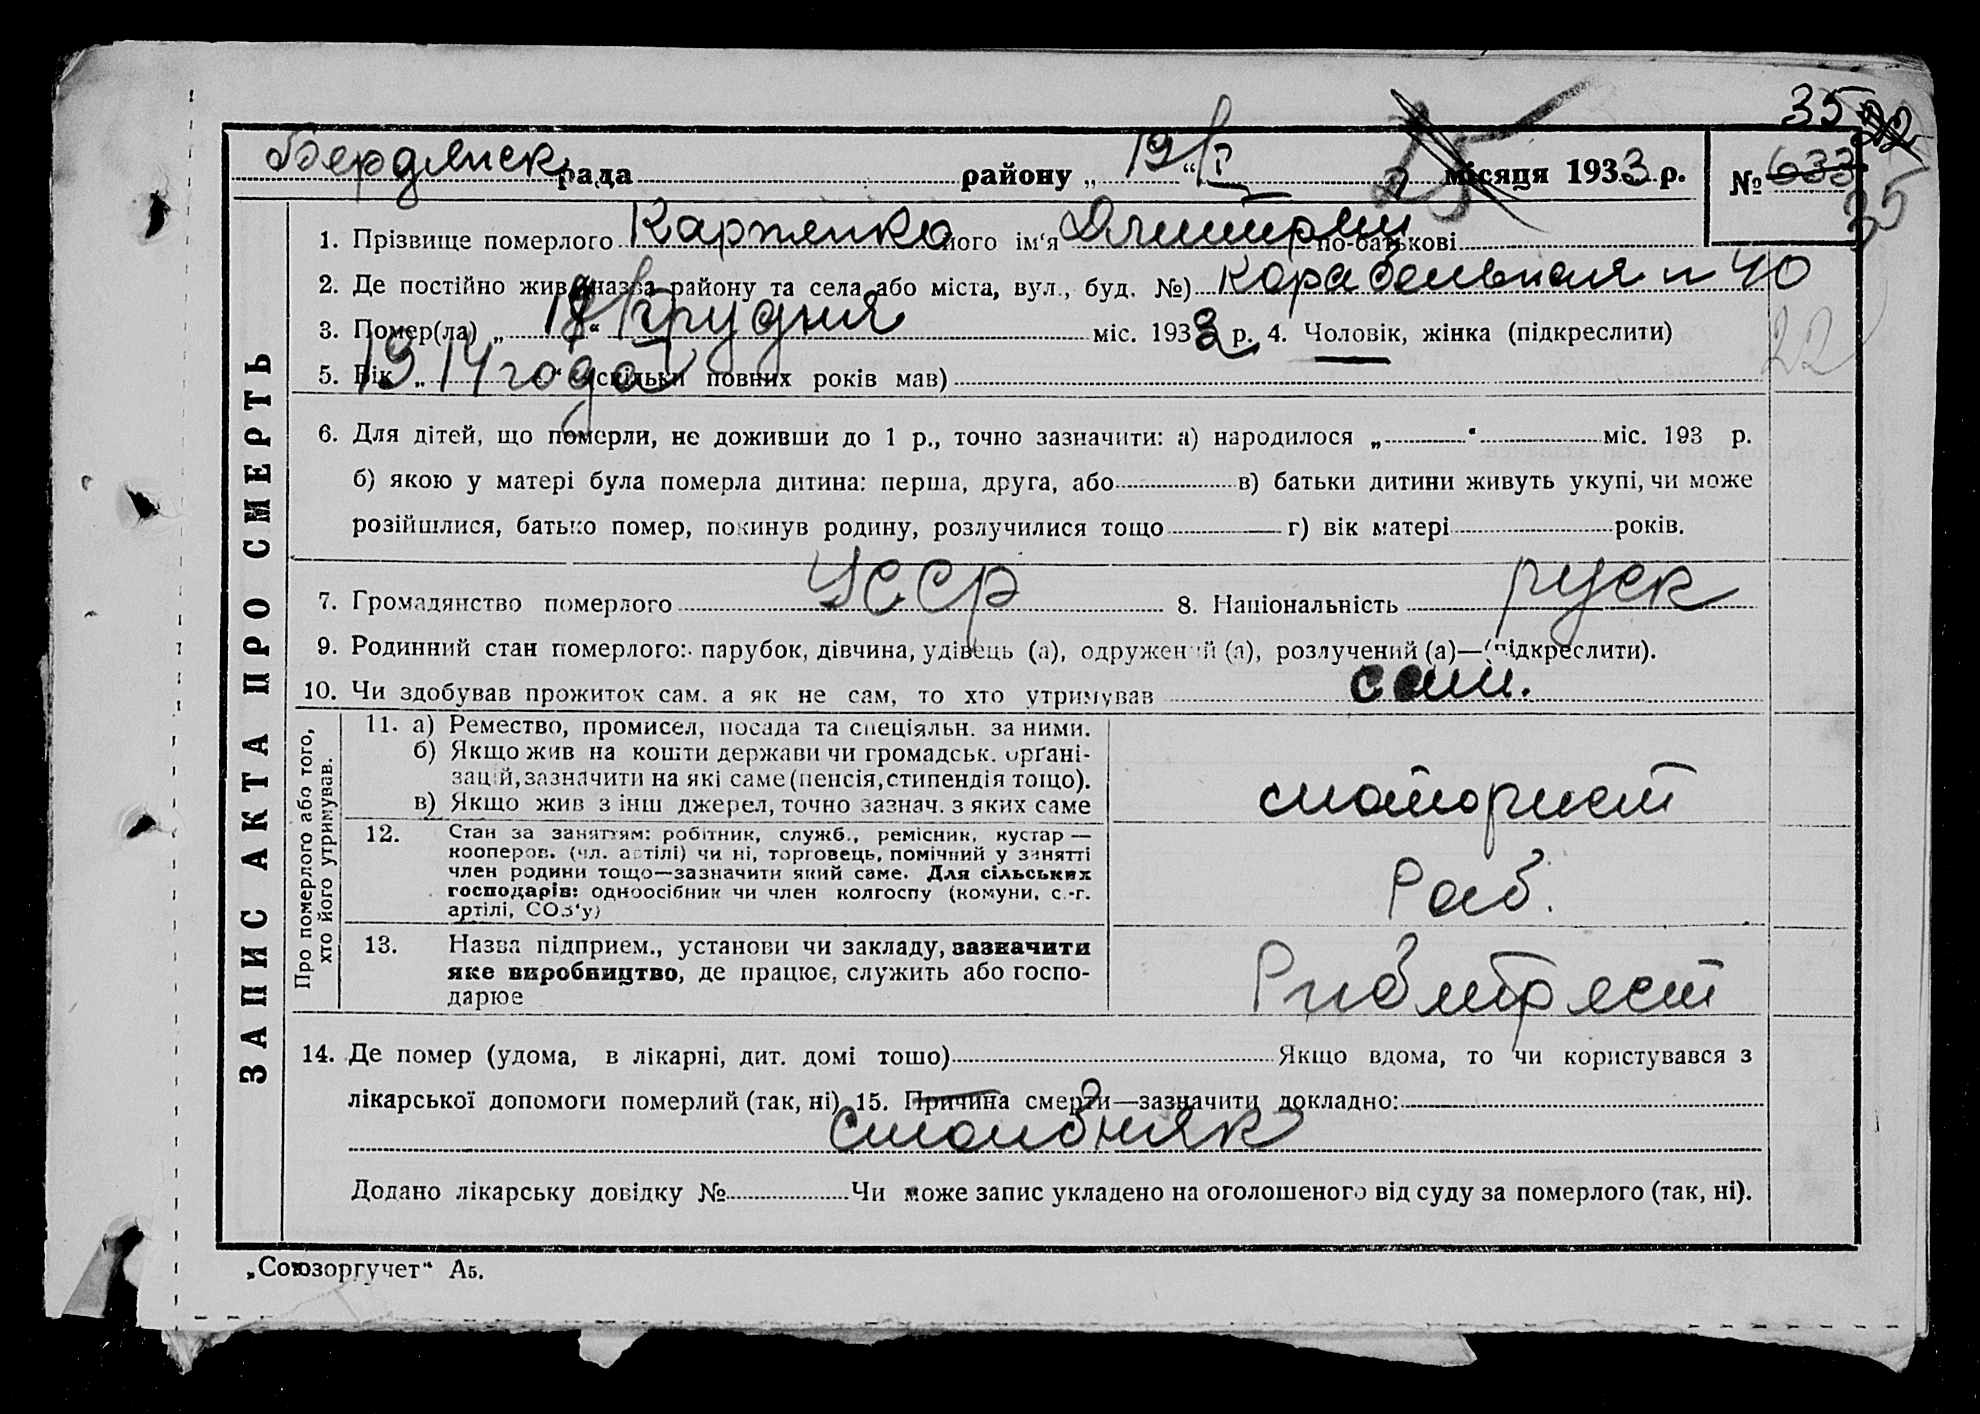 35 22
Бердянск рада района „ 19 “ I місяця 1933 р. № 633
25
35
1. Прізвище померлого Карпенко його ім‘я Дмитрий по-батькові
2. Де постійно жив (назва району та села або міста, вул., буд. №) Корабельная n 40
3. Помер(ла) „ 19 “ грудня міс. 1932 р. 4. Чоловік, жінка (підкреслити)
22
5. Вік „ 1914 года “ (скільки повних років мав)
6. Для дітей, що померли, не доживши до 1 р., точно зазначити: а) народилося „ “ міс. 193 р.
б) якою у матері була померла дитина: перша, друга, або в) батьки дитини живуть укупі, чи може
розійшлися, батько помер, покинув родину, розлучилися тощо г) вік матері років.
7. Громадянство померлого УССР 8. Національність руск
9. Родинний стан померлого: парубок, дівчина, удівець (а), одружений (а), розлучений (а)—(підкреслити).
10. Чи здобував прожиток сам. а як не сам, то хто утримував сам.
ЗАПИС АКТА ПРО СМЕРТЬ
Про померлого або того,
хто його утримував.
11. а) Ремество, промисел, посада та спеціяльн. за ними.
б) Якщо жив на кошти держави чи громадськ. орґані-
зацій, зазначити на які саме (пенсія, стипендія тощо).
в) Якщо жив з інш джерел, точно зазнач. з яких саме
моторист
12. Стан за заняттям: робітник, служб., ремісник, кустар —
кооперов. (чл. артілі) чи ні, торговець, помічний у занятті
член родини тощо—зазначити який саме. Для сільських
господарів: одноосібник чи член колгоспу (комуни, с.-г.
артілі, СОЗ‘у)
Раб.
13. Назва підприєм., установи чи закладу, зазначити
яке виробництво, де працює, служить або госпо-
дарює
Рибтрест
14. Де помер (удома, в лікарні, дит. домі тошо) Якщо вдома, то чи користувався з
лікарської допомоги померлий (так, ні) 15. Причина смерти—зазначити докладно:
столбняк
Додано лікарську довідку № Чи може запис укладено на оголошеного від суду за померлого (так, ні).
„Союзоргучет“ А5.